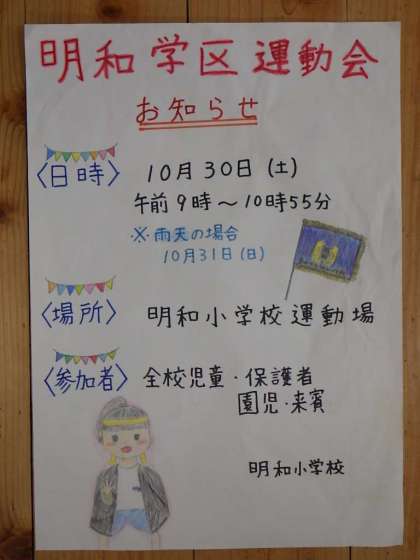 明和学区運動会
お知らせ
〈日時〉 10月30日(土)
午前9時～10時55分
※雨天の場合
10月31日(日)
〈場所〉 明和小学校運動場
〈参加者〉 全校児童・保護者
園児・来賓
明和小学校